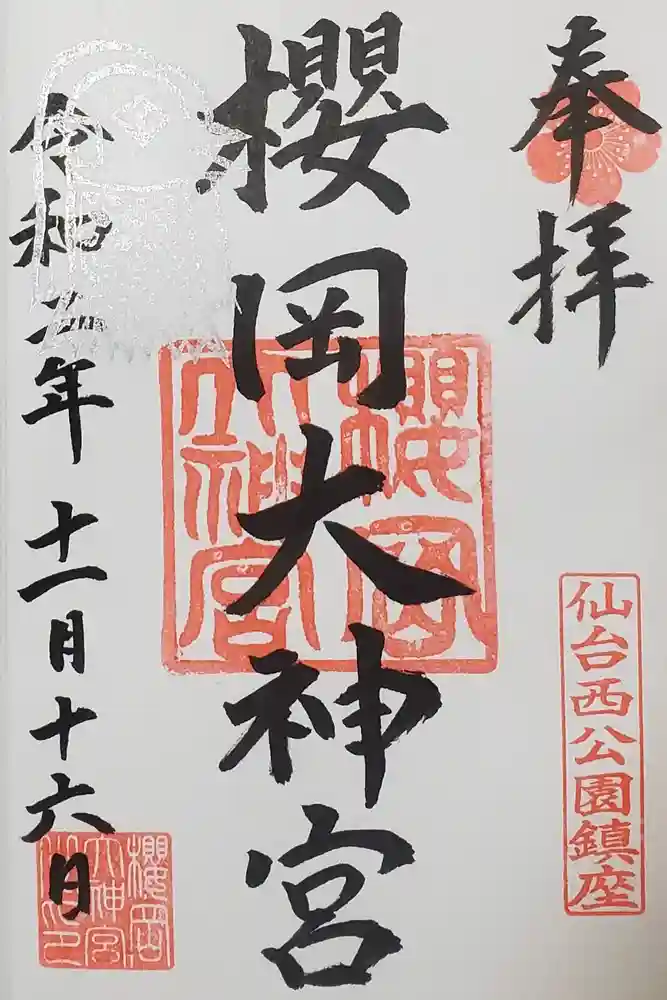 奉拝
仙台西公園鎮座
櫻岡大神宮
櫻岡
大神宮
令和五年十一月十六日
櫻岡
大神宮